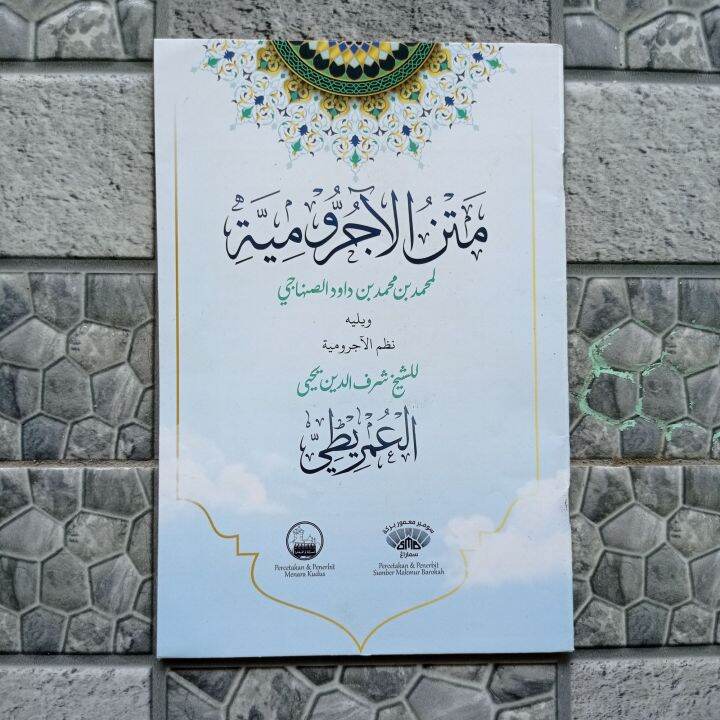 مَتْنُ الْآجُرُّومِيَّةِ
لمحمد بن محمد بن داود الصنهاجي
ويليه
نظم الآجرومية
للشيخ شرف الدين يحيى
العُمْرِيطِيّ
Percetakan & Penerbit
Menara Kudus
سومبر معمور بركة
سماراڠ
Percetakan & Penerbit
Sumber Makmur Barokah